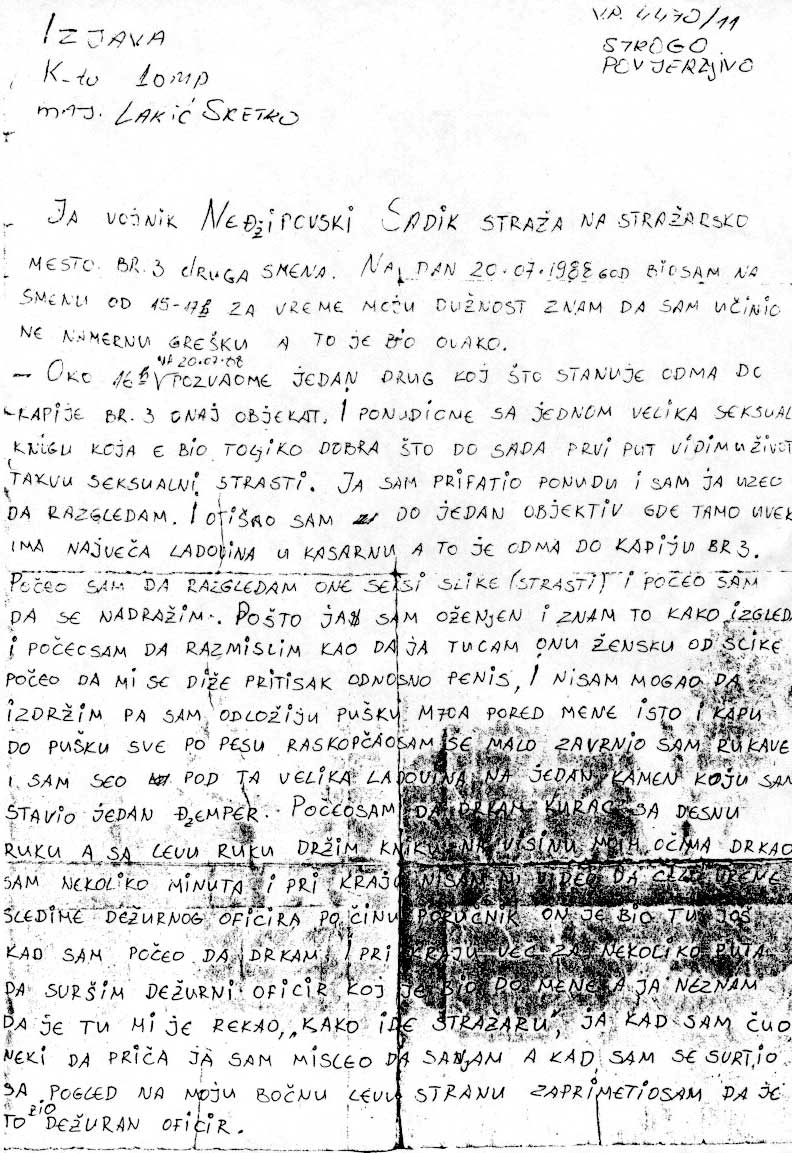 IZJAVA
K-tu 10MP
maj. LAKIĆ SRETKO
V.P. 4470/11
STROGO
POVJERLJIVO
JA VOJNIK NEĐŽIPOVSKI SADIK STRAŽA NA STRAŽARSKO
MESTO BR.3 dRUGA SMENA. NA DAN 20.07.1988 GOD BIOSAM NA
SMENU OD 15-17h ZA VREME MOJU DUŽNOST ZNAM DA SAM UČINIO
NE NAMERNU GREŠKU A TO JE BIO OVAKO.
20.07.88
- OKO 16h POZVAOME JEDAN DRUG KOJ ŠTO STANUJE ODMA DO
KAPIJE BR.3 ONAJ OBJEKAT. I PONUDIOME SA JEDNOM VELIKA SEKSUAL
KNIGU KOJA E BIO TOLJIKO DOBRA ŠTO DO SADA PRVI PUT VIDIM U ŽIVOT
TAKVU SEKSUALNI STRASTI. JA SAM PRIFATIO PONUDU I SAM JA UZEO
DA RAZGLEDAM. I OTIŠAO SAM DO JEDAN OBJEKTIV GDE TAMO UVEK
IMA NAJVEČA LADOVINA U KASARNU A TO JE ODMA DO KAPIJU BR 3.
POČEO SAM DA RAZGLEDAM ONE SEKSI SLIKE (STRASTI) I POČEO SAM
DA SE NADRAŽIM. POŠTO JA SAM OŽENJEN I ZNAM TO KAKO IZGLEDA
I POČEOSAM DA RAZMISLIM KAO DA JA TUCAM ONU ŽENSKU OD SLIKE
POČEO DA MI SE DIŽE PRITISAK ODNOSNO PENIS, I NISAM MOGAO DA
IZDRŽIM PA SAM ODLOŽIJU PUŠKU M70A PORED MENE ISTO I KAPU
DO PUŠKU SVE PO PESU RASKOPČAOSAM SE MALO ZAVRNIO SAM RUKAVE
I SAM SEO POD TA VELIKA LADOVINA NA JEDAN KAMEN KOJU SAM
STAVIO JEDAN ĐŽEMPER. POČEOSAM DA DRKAM KURAC SA DESNU
RUKU A SA LEVU RUKU DRŽIM KNIKU NA VISINU MOIH OCIMA DRKAO
SAM NEKOLIKO MINUTA I PRI KRAJU NISAM NI VIDEO DA CELO VREME
SLEDIME DEŽURNOG OFICIRA PO ČINU PORUČNIK ON JE BIO TU JOŠ
KAD SAM POČEO DA DRKAM I PRI KRAJU VEČ ZA NEKOLIKO PUTA
DA SURŠIM DEŽURNI OFICIR KOJ JE BIO DO MENE A JA NEZNAM
DA JE TU MI JE REKAO, "KAKO IDE STRAŽARU", JA KAD SAM ČUO
NEKI DA PRIČA JA SAM MISLEO DA SANJAM A KAD SAM SE SURTIO
SA POGLED NA MOJU BOČNU LEVU STRANU ZAPRIMETIOSAM DA JE
TO BIO DEŽURAN OFICIR.